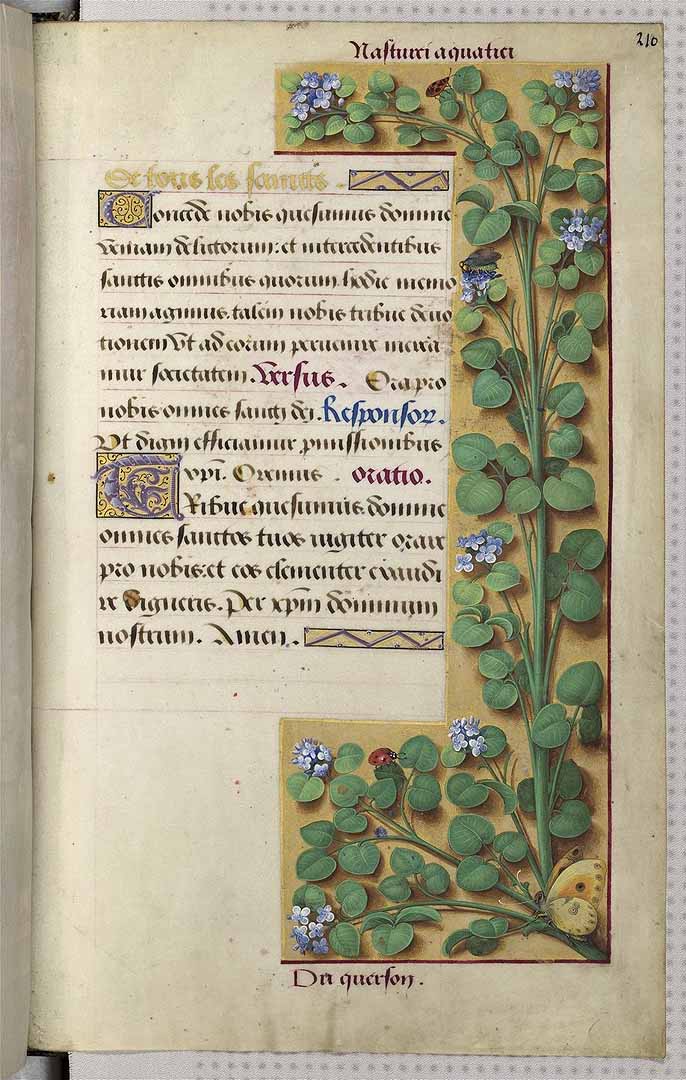 210
Nasturci aquatici
De tous les saincts.
Concede nobis quesumus domine
veniam delictorum: et intercedentibus
sanctis omnibus quorum hodie memo
riam agimus. talem nobis tribue devo
tionem Vt ad eorum pervenire merea
mur societatem. Versus. Orapro
nobis omnes sancti dei. Responsor.
Vt digni efficiamur promissionibus
xpi. Oremus. oratio.
Tribue quesumus domine
omnes sanctos tuos iugiter orare
pro nobis: et eos clementer exaudi
re digneris. Per xpm dominum
nostrum. Amen.
Du querson.